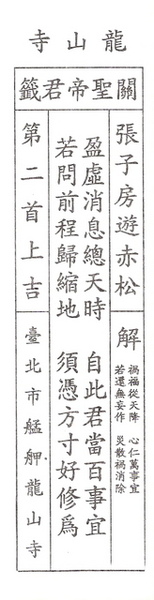 龍山寺
關聖帝君籤
張子房遊赤松
解
禍福從天降 心仁萬事宜
若還無妄作 災散禍消除
盈虛消息總天時 自此君當百事宜
若問前程歸縮地 須憑方寸好修為
第二首上吉
臺北市艋舺龍山寺